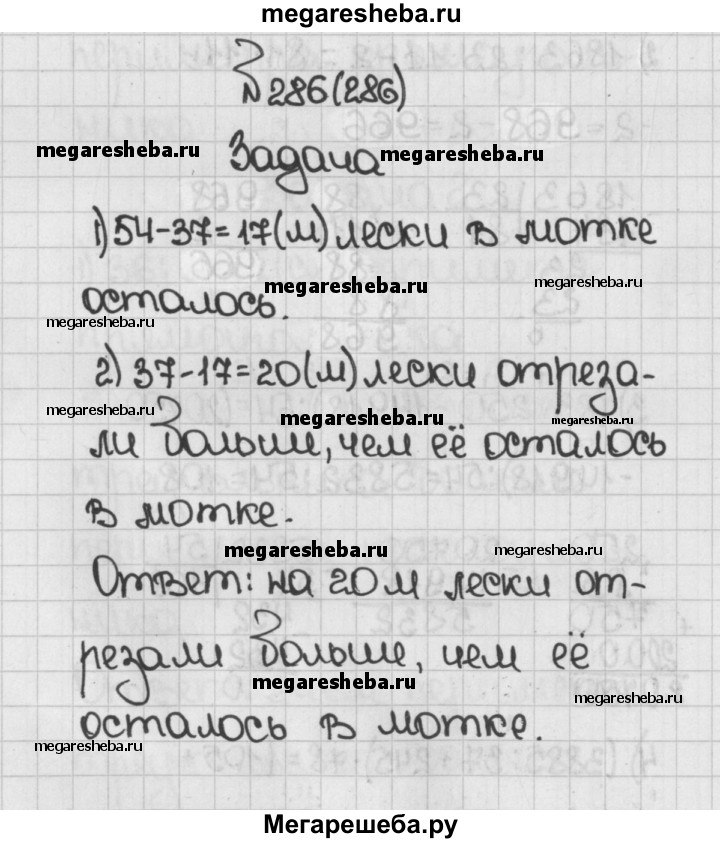 megaresheba.ru
№286(286)
megaresheba.ru Задача megaresheba.ru
1) 54-37=17(м) лески в мотке
megaresheba.ru
осталось.
megaresheba.ru
megaresheba.ru
2) 37-17=20(м) лески отреза-
megaresheba.ru megaresheba.ru megaresheba.ru
ли больше, чем её осталось
в мотке.
megaresheba.ru megaresheba.ru
Ответ: на 20 м лески от-
резали больше, чем её
megaresheba.ru megaresheba.ru
осталось в мотке.
megaresheba.ru
Мегарешеба.ру